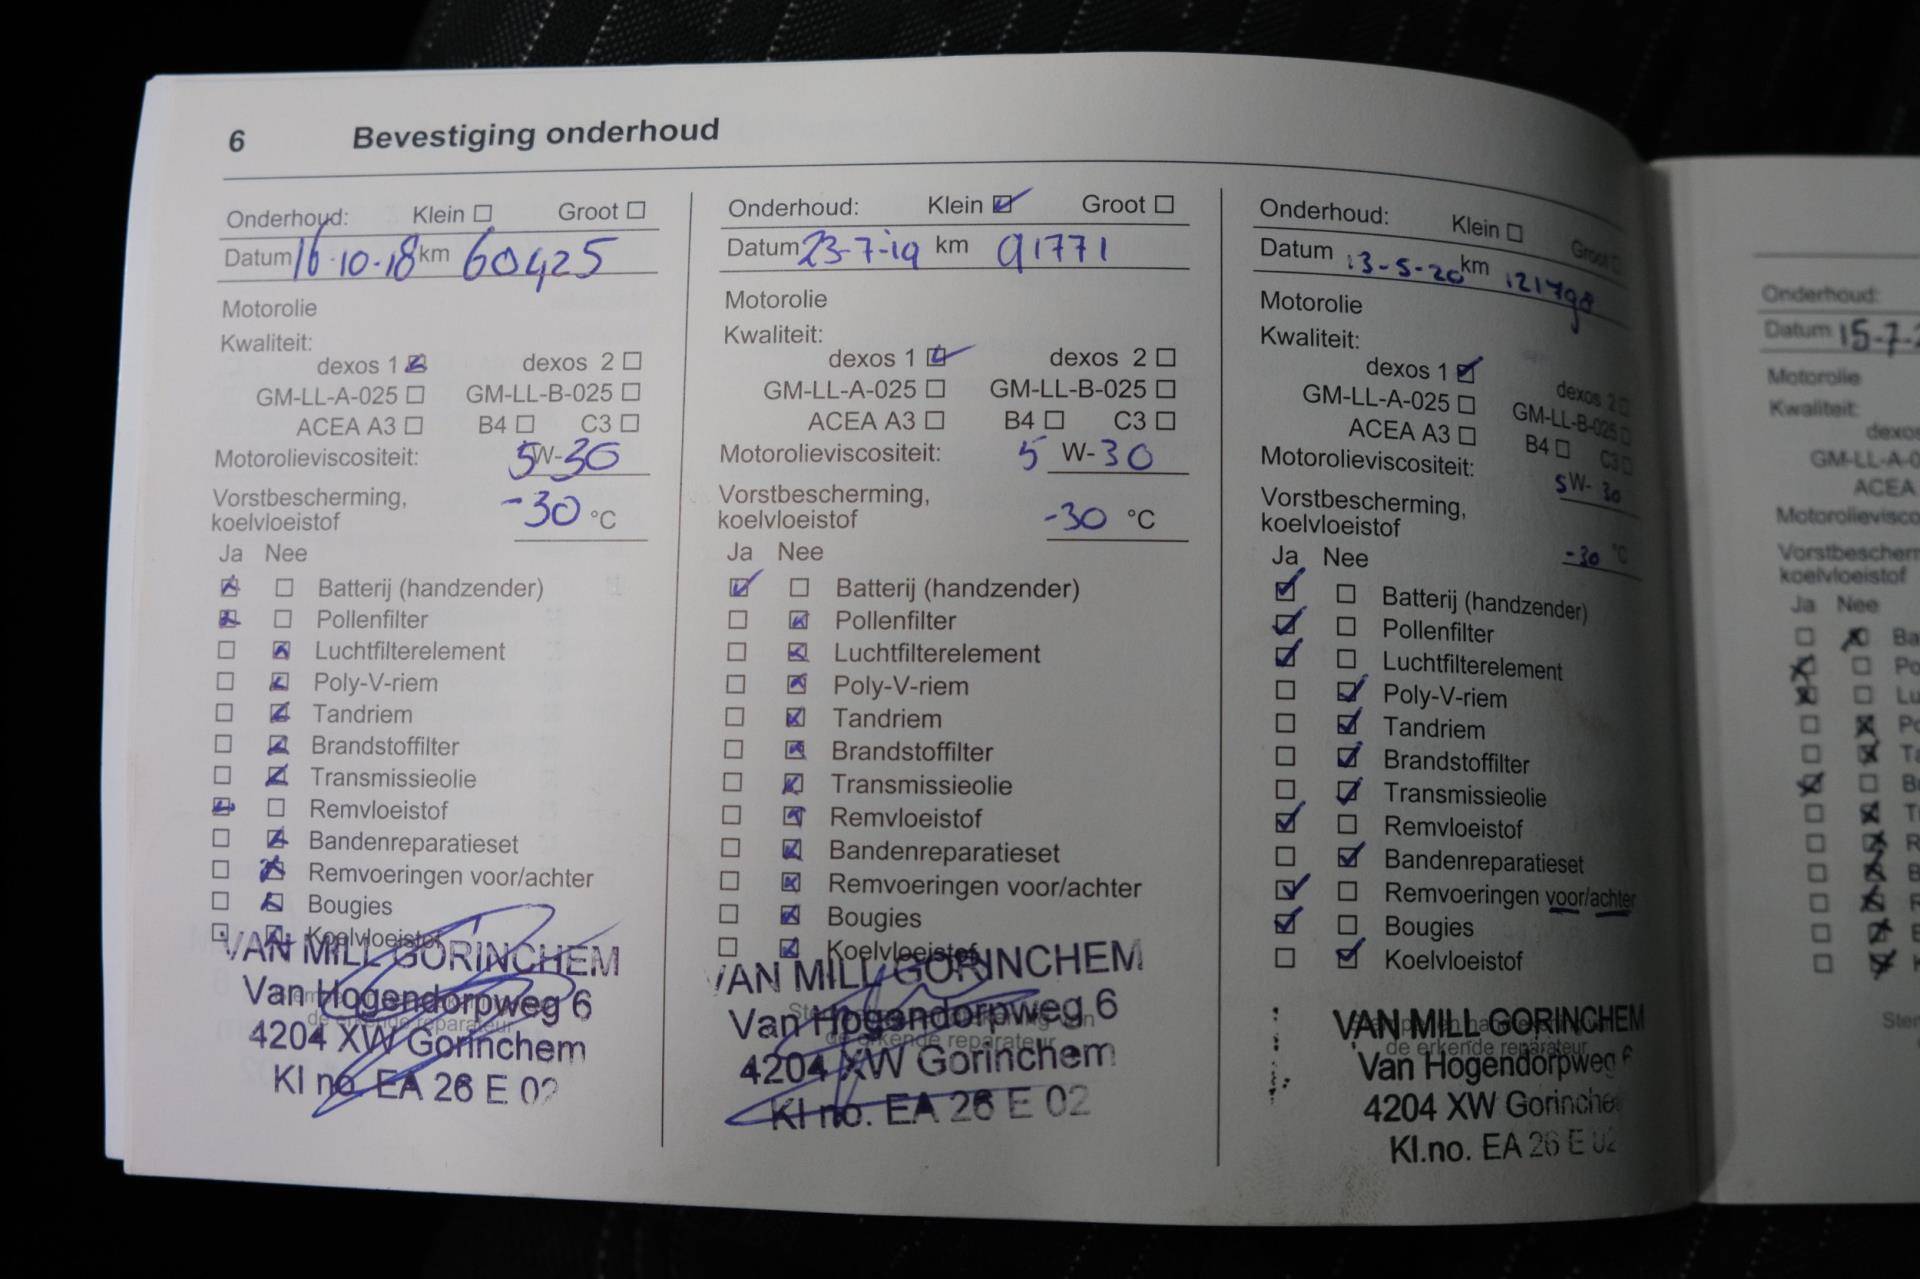 6 Bevestiging onderhoud
Onderhoud: Klein Groot
Datum 16-10-18 km 60425
Motorolie
Kwaliteit:
dexos 1 dexos 2
GM-LL-A-025 GM-LL-B-025
ACEA A3 B4 C3
Motorolieviscositeit: 5W-30
Vorstbescherming,
koelvloeistof -30 °C
Ja Nee
Batterij (handzender)
Pollenfilter
Luchtfilterelement
Poly-V-riem
Tandriem
Brandstoffilter
Transmissieolie
Remvloeistof
Bandenreparatieset
Remvoeringen voor/achter
Bougies
Koelvloeistof
VAN MILL GORINCHEM
Van Hogendorpweg 6
de erkende reparateur
4204 XW Gorinchem
Kl no. EA 26 E 02
Onderhoud: Klein Groot
Datum 23-7-19 km 91771
Motorolie
Kwaliteit:
dexos 1 dexos 2
GM-LL-A-025 GM-LL-B-025
ACEA A3 B4 C3
Motorolieviscositeit: 5 W-30
Vorstbescherming,
koelvloeistof -30 °C
Ja Nee
Batterij (handzender)
Pollenfilter
Luchtfilterelement
Poly-V-riem
Tandriem
Brandstoffilter
Transmissieolie
Remvloeistof
Bandenreparatieset
Remvoeringen voor/achter
Bougies
Koelvloeistof
VAN MILL GORINCHEM
Van Hogendorpweg 6
de erkende reparateur
4204 XW Gorinchem
Kl no. EA 26 E 02
Onderhoud: Klein Groot
Datum 13-5-20 km 121798
Motorolie
Kwaliteit:
dexos 1 dexos 2
GM-LL-A-025 GM-LL-B-025
ACEA A3 B4 C3
Motorolieviscositeit: 5W-30
Vorstbescherming,
koelvloeistof -30 °C
Ja Nee
Batterij (handzender)
Pollenfilter
Luchtfilterelement
Poly-V-riem
Tandriem
Brandstoffilter
Transmissieolie
Remvloeistof
Bandenreparatieset
Remvoeringen voor/achter
Bougies
Koelvloeistof
VAN MILL GORINCHEM
de erkende reparateur
Van Hogendorpweg 6
4204 XW Gorinche
Kl.no. EA 26 E 02
Onderhoud:
Datum 15-7-2
Motorolie
Kwaliteit:
dexos
GM-LL-A-0
ACEA
Motorolievisco
Vorstbescherm
koelvloeistof
Ja Nee
Ba
Po
Lu
Po
Ta
B
T
R
B
R
B
K
Ster